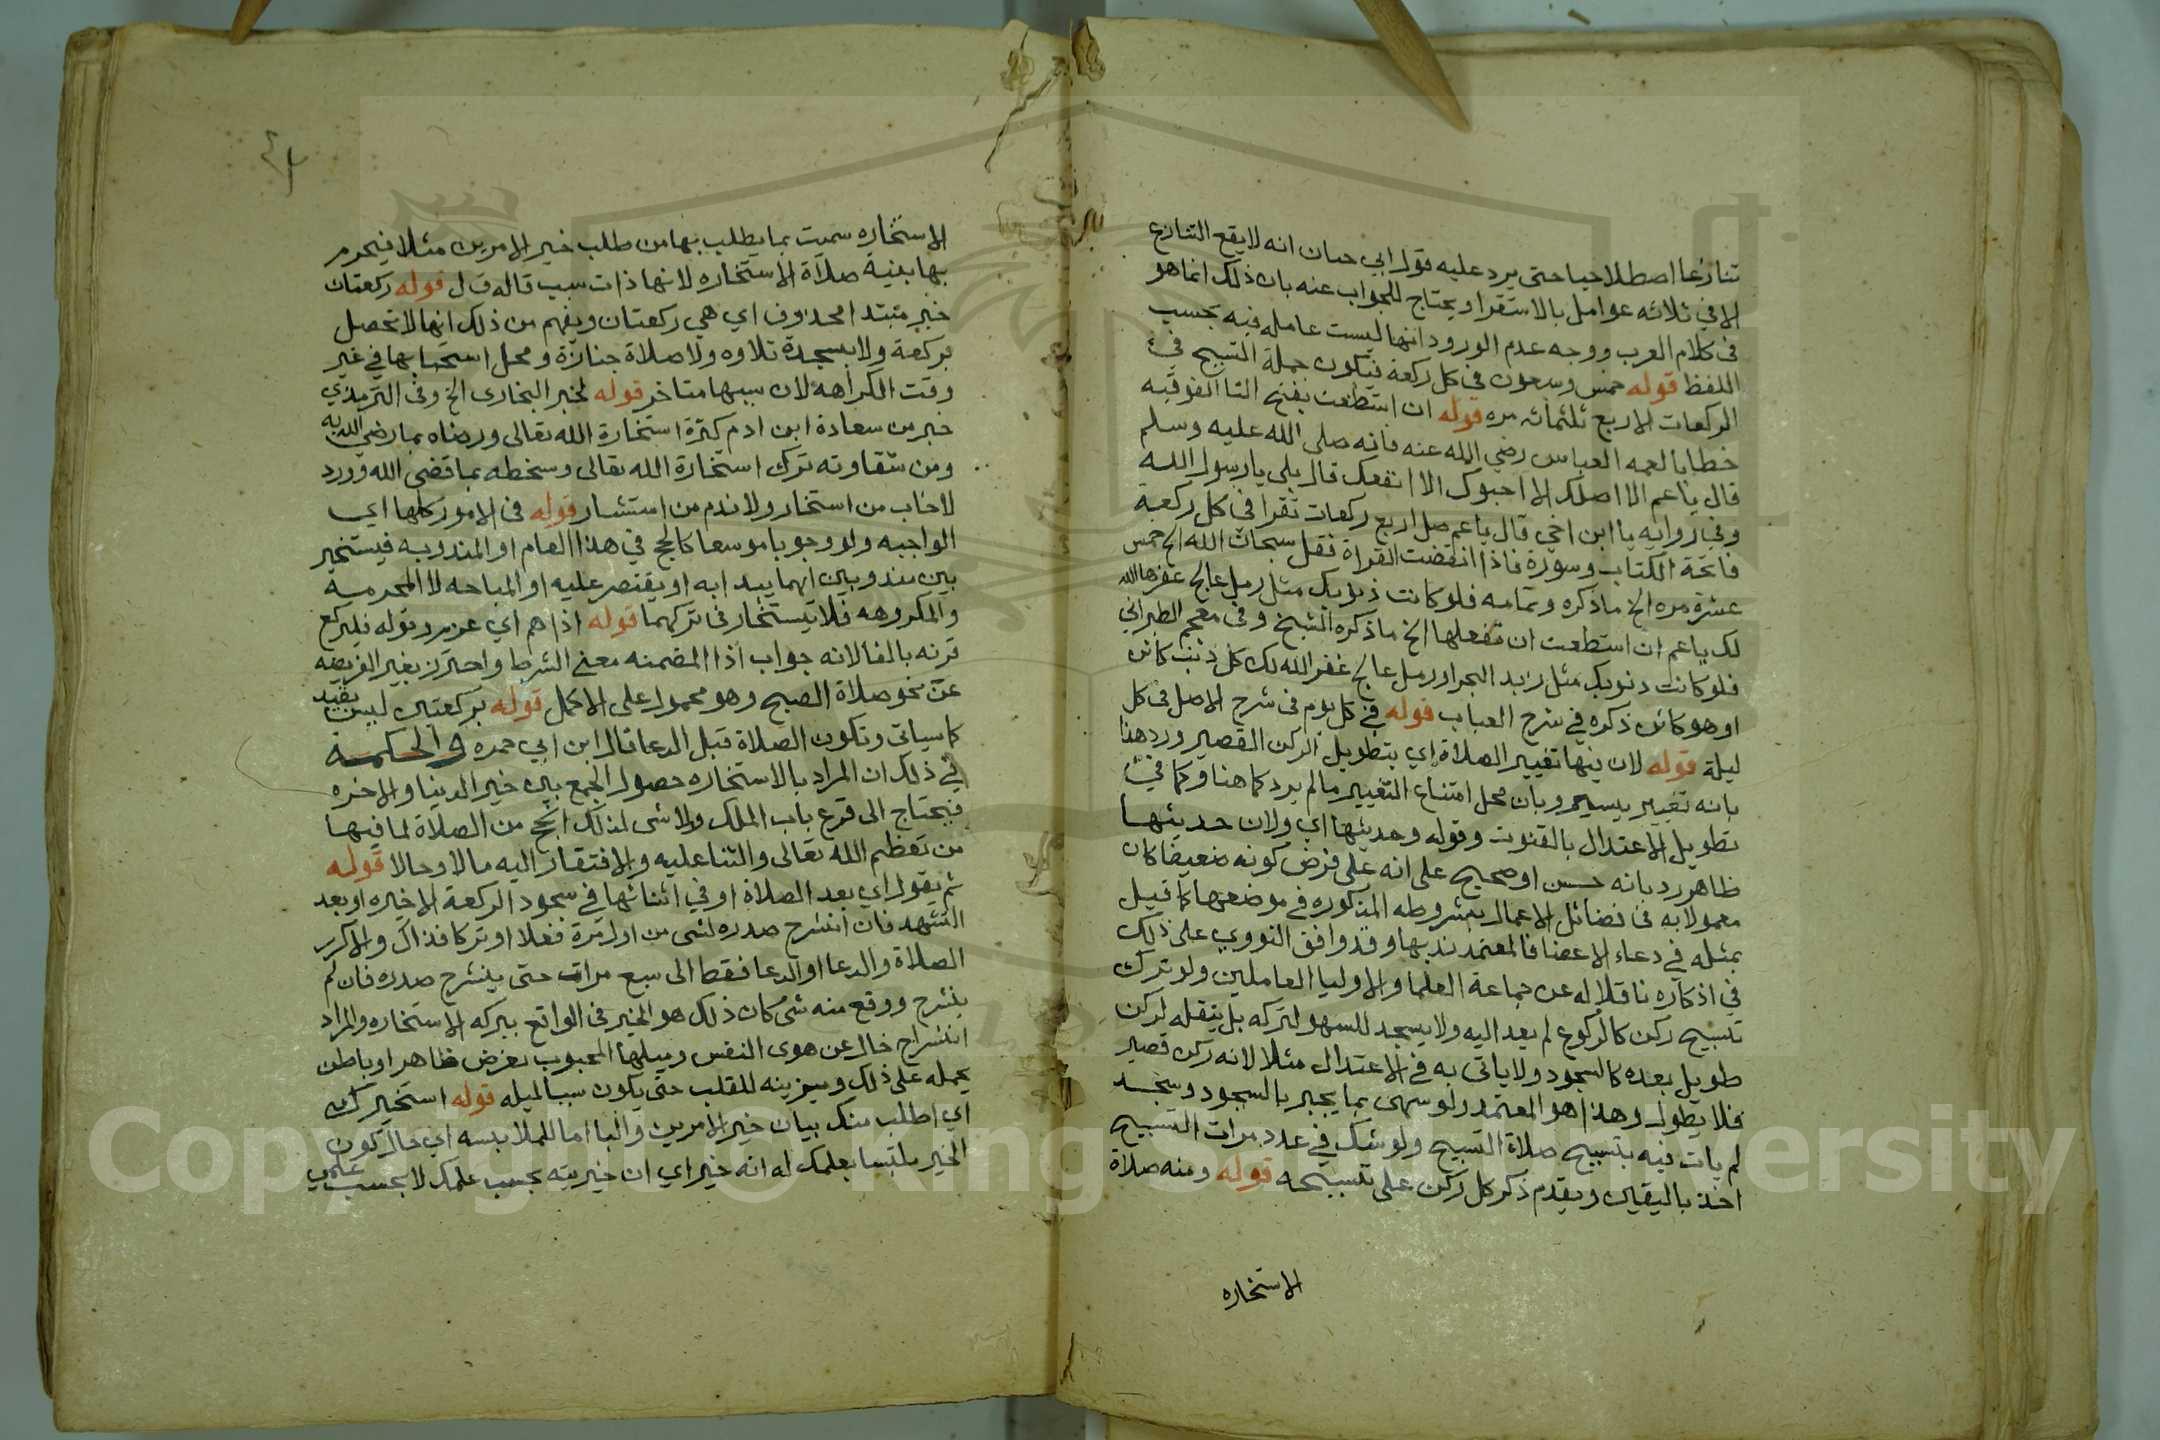 تنازعا اصطلاحيا حتى يرد عليه قول ابي حيان انه لا يقع التنازع
الا في ثلاثه عوامل بالاستقرا ويحتاج للجواب عنه بان ذلك انما هو
في كلام العرب ووجه عدم الورود انها ليست عامله فيه بحسب
اللفظ قوله خمس وسبعون في كل ركعة فيكون جملة التسبيح في
الركعات الاربع ثلثمائه مره قوله ان استطعت بفتح التا الفوقيه
خطابا لعمه العباس رضي الله عنه فانه صلى الله عليه وسلم
قال يا عم الا اصلك الا احبوك الا انفعك قال بلى يا رسول الله
وفي روايه يا ابن اخي قال يا عم صل اربع ركعات تقرا في كل ركعة
فاتحة الكتاب وسورة فاذا انقضت القراة فقل سبحان الله الخ خمس
عشرة مره الخ ما ذكره وتمامه فلو كانت ذنوبك مثل رمل عالج غفرها الله
لك يا عم ان استطعت ان تفعلها الخ ما ذكره الشيخ وفي معجم الطبراني
فلو كانت ذنوبك مثل زبد البحر او رمل عالج غفر الله لك كل ذنب كان
او هو كائن ذكره في شرح العباب قوله في كل يوم في شرح الاصل في كل
ليلة قوله لان فيها تغيير الصلاة اي بتطويل الركن القصير ورد هذا
بانه تغيير يسير وبان محل امتناع التغيير ما لم يرد كما هنا وكما في
تطويل الاعتدال بالقنوت وقوله وحديثها اي ولان حديثها
ظاهر رد بانه حسن او صحيح على انه على فرض كونه ضعيفا كان
معمولا به في فضائل الاعمال بشروطه المذكوره في موضعها كما قيل
بمثله في دعاء الاعضا فالمعتمد ندبها وقد وافق النووي على ذلك
في اذكاره ناقلا له عن جماعة العلما والاوليا العاملين ولو ترك
تسبيح ركن كالركوع لم يعد اليه ولا يسجد للسهو لتركه بل ينقله لركن
طويل بعده كالسجود ولا ياتي به في الاعتدال مثلا لانه ركن قصير
فلا يطول وهذا هو المعتمد ولو سهى بما يجبر بالسجود وسجد
لم يات فيه بتسبيح صلاة التسبيح ولو شك في عدد مرات التسبيح
اخذ باليقين ويقدم ذكر كل ركن على تسبيحه قوله ومنه صلاة
الاستخاره
الاستخاره سميت بما يطلب بها من طلب خير الامرين مثلا فيحرم
بها بنية صلاة الاستخاره لانها ذات سبب قاله ق ل قوله ركعتان
خبر مبتدا محذوف اي هي ركعتان ويفهم من ذلك انها لا تحصل
بركعة ولا بسجدة تلاوه ولا صلاة جنازة ومحل استحبابها في غير
وقت الكراهة لان سببها متاخر قوله لخبر البخاري الخ وفي الترمذي
خبر من سعادة ابن ادم كثرة استخارة الله تعالى ورضاه بما رضي الله به
ومن شقاوته ترك استخارة الله تعالى وسخطه بما قضى الله وورد
لا خاب من استخار ولا ندم من استشار قوله في الامور كلها اي
الواجبه ولو وجوبا موسعا كالحج في هذا العام او المندوبه فيستخير
بين مندوبين ايهما يبدا به او يقتصر عليه او المباحه لا المحرمه
والمكروهه فلا يستخار في تركهما قوله اذا هم اي عزم وقوله فليركع
قرنه بالفا لانه جواب اذا المضمنه معنى الشرط واحترز بغير الفريضه
عن نحو صلاة الصبح وهو محمول على الاكمل قوله بركعتين ليس بقيد
كما سياتي وتكون الصلاة قبل الدعا قال ابن ابي حمره والحكمة
في ذلك ان المراد بالاستخاره حصول الجمع بين خير الدنيا والاخره
فيحتاج الى قرع باب الملك ولا شي لذلك انجح من الصلاة لما فيها
من تعظيم الله تعالى والثنا عليه والافتقار اليه مالا وحالا قوله
ثم يقول اي بعد الصلاة او في اثنائها في سجود الركعة الاخيره او بعد
التشهد فان انشرح صدره لشي من اول مرة فعلا او تركا فذاك والا كرر
الصلاة والدعا او الدعا فقط الى سبع مرات حتى ينشرح صدره فان لم
ينشرح ووقع منه شي كان ذلك هو الخير في الواقع ببركه الاستخاره والمراد
انشراح خال عن هوى النفس وميلها المحبوب بغرض ظاهر او باطن
يحمله على ذلك ويزينه للقلب حتى يكون سببا لميله قوله استخيرك
اي اطلب منك بيان خير الامرين والبا اما للملابسه اي حال كون
الخير ملتبسا بعلمك له انه خير اي ان خيريته بحسب علمك لا بحسب علمي
Copyright © King Saud University